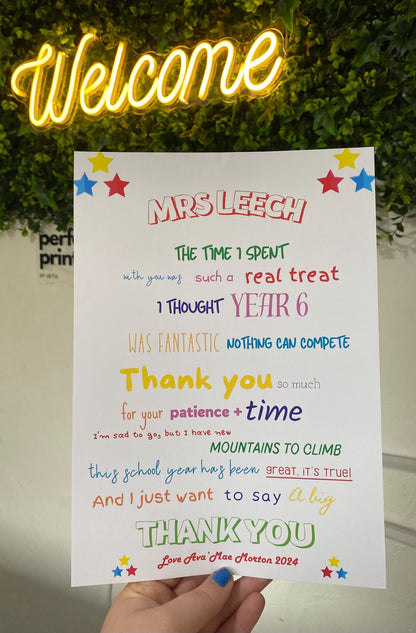 Welcome
MRS LEECH
THE TIME I SPENT
with you was such a real treat
I THOUGHT YEAR 6
WAS FANTASTIC NOTHING CAN COMPETE
Thank you so much
for your patience + time
I'm sad to go, but I have new
MOUNTAINS TO CLIMB
this school year has been great, it's true!
And I just want to say A big
THANK YOU
Love Ava'Mae Morton 2024